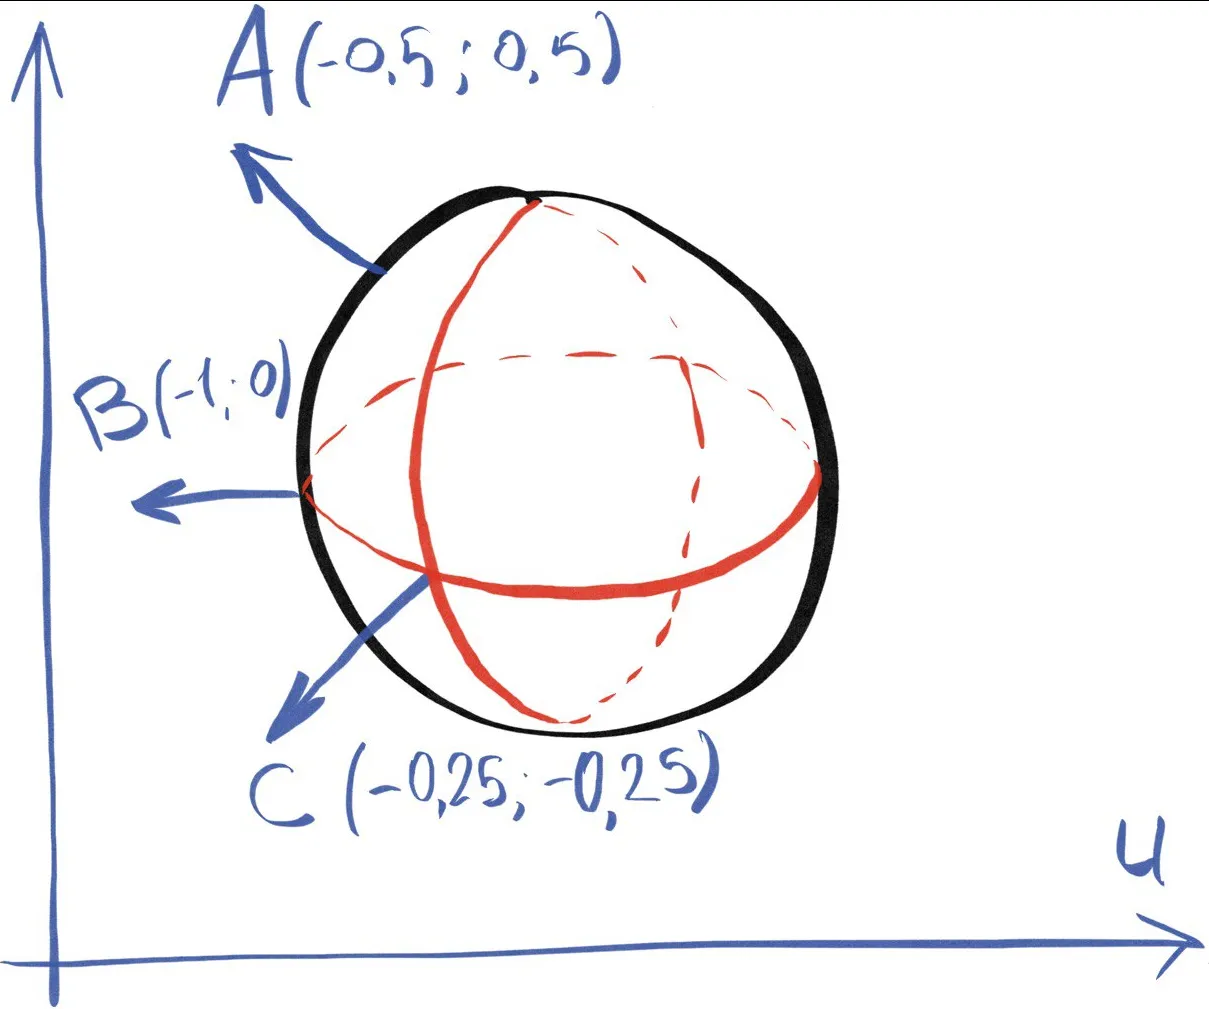 A(-0,5; 0,5)
B(-1; 0)
C (-0,25; -0,25)
u